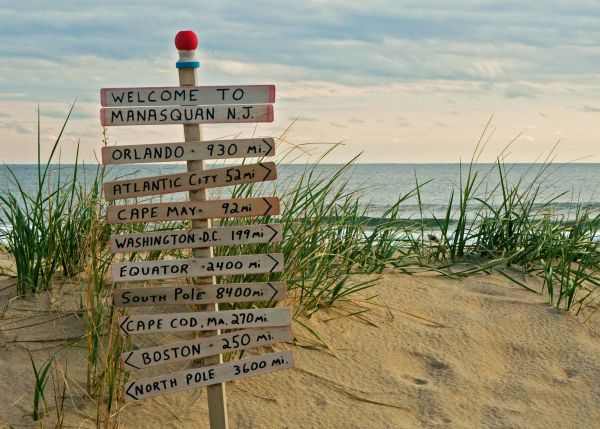 WELCOME TO
MANASQUAN N.J.
ORLANDO · 930 mi.
ATLANTIC CITY 52mi
CAPE MAY · 92mi
WASHINGTON · D.C. 199mi
EQUATOR · 2400 mi
SOUTH POLE 8400mi
CAPE COD, Ma. 270mi.
BOSTON · 250 mi
NORTH POLE 3600 mi.